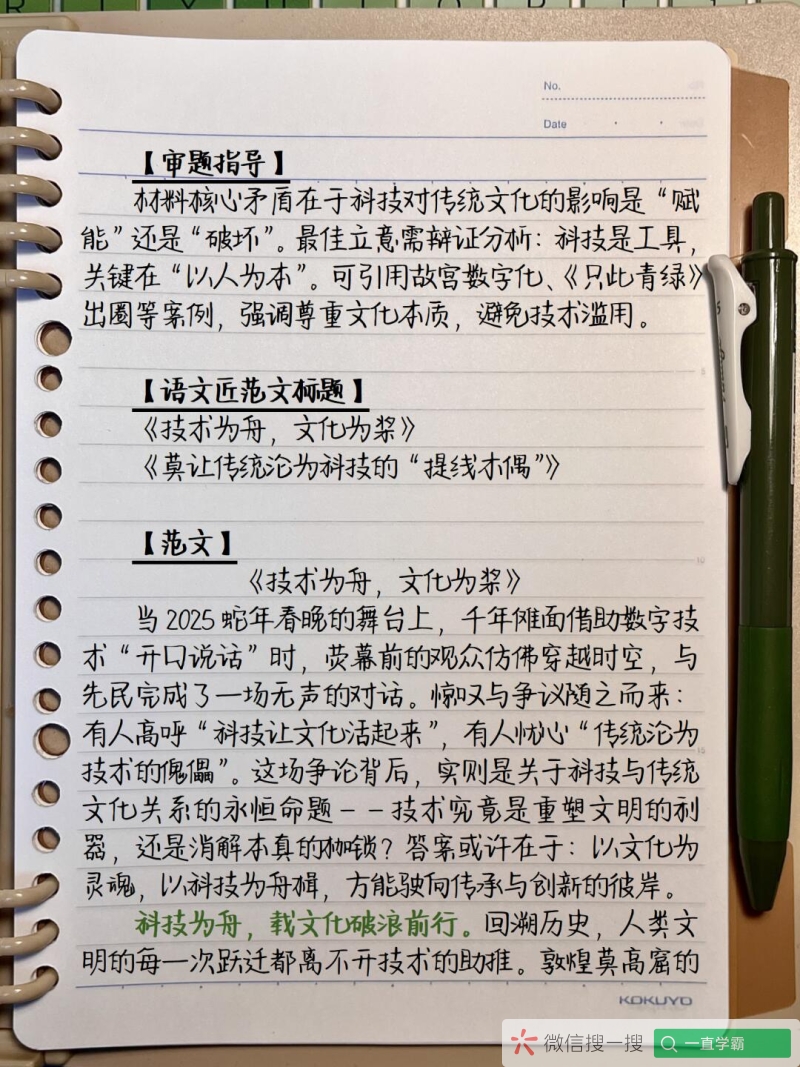 No.
Date
【审题指导】
材料核心矛盾在于科技对传统文化的影响是“赋
能”还是“破坏”。最佳立意需辩证分析：科技是工具，
关键在“以人为本”。可引用故宫数字化、《只此青绿》
出圈等案例，强调尊重文化本质，避免技术滥用。
【语文匠范文标题】
《技术为舟，文化为桨》
《莫让传统沦为科技的“提线木偶”》
【范文】
《技术为舟，文化为桨》
当2025蛇年春晚的舞台上，千年傩面借助数字技
术“开口说话”时，荧幕前的观众仿佛穿越时空，与
先民完成了一场无声的对话。惊叹与争议随之而来：
有人高呼“科技让文化活起来”，有人忧心“传统沦为
技术的傀儡”。这场争论背后，实则是关于科技与传统
文化关系的永恒命题--技术究竟是重塑文明的利
器，还是消解本真的枷锁？答案或许在于：以文化为
灵魂，以科技为舟楫，方能驶向传承与创新的彼岸。
科技为舟，载文化破浪前行。回溯历史，人类文
明的每一次跃迁都离不开技术的助推。敦煌莫高窟的
KOKUYO
微信搜一搜
一直学霸